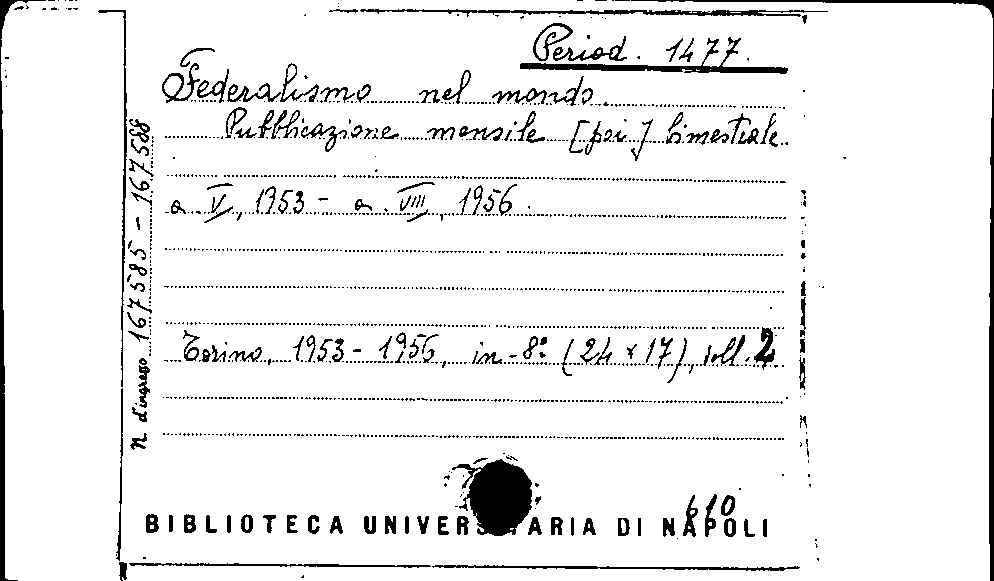 Period. 1477.
Federalismo nel mondo.
Pubblicazione mensile [poi] bimestrale.
a. V, 1953 - a. VIII, 1956.
Torino, 1953 - 1956, in-8° (24 x 17), voll. 2
N. d'ingresso 167585 - 167588
610
BIBLIOTECA UNIVERS TARIA DI NAPOLI